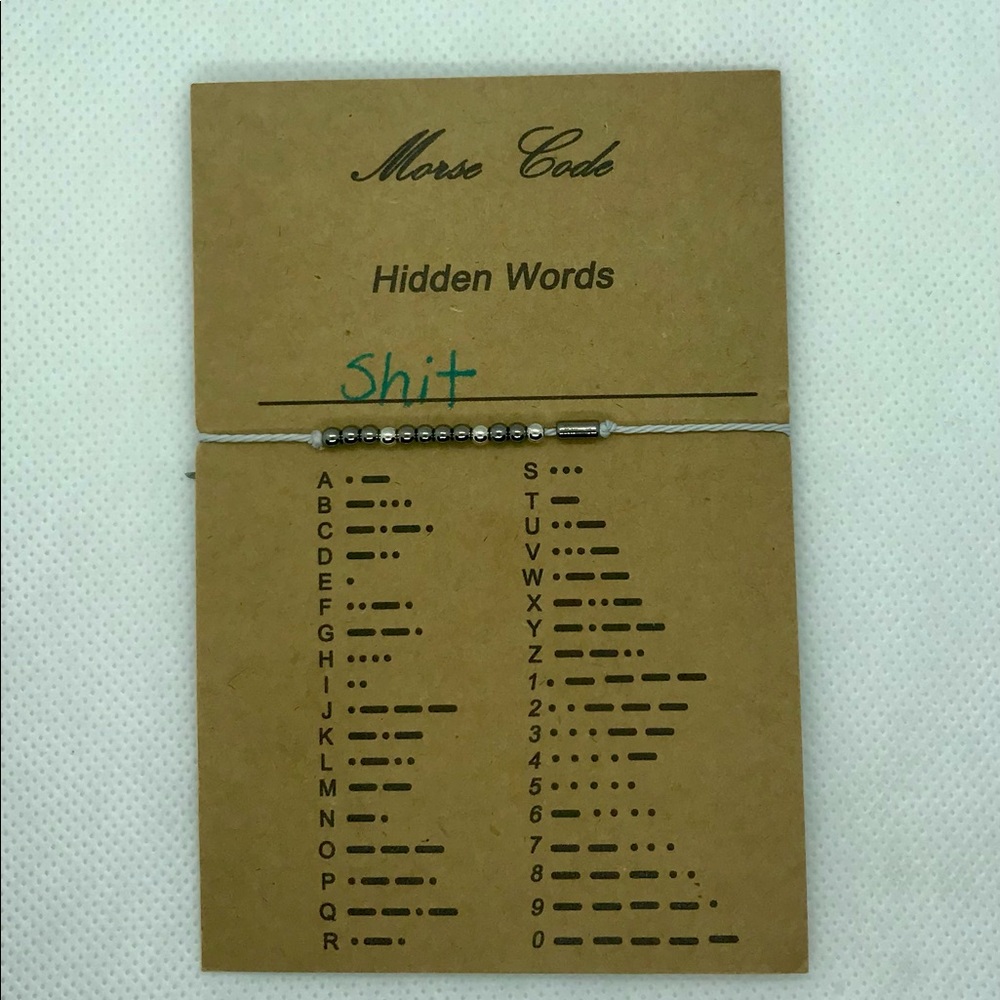 Morse Code
Hidden Words
Shit
A •—
B —•••
C —•—•
D —••
E •
F ••—•
G ——•
H ••••
I ••
J •———
K —•—
L •—••
M ——
N —•
O ———
P •——•
Q ——•—
R •—•
S •••
T —
U ••—
V •••—
W •——
X —••—
Y —•——
Z ——••
1 •————
2 ••———
3 •••——
4 ••••—
5 •••••
6 —••••
7 ——•••
8 ———••
9 ————•
0 —————